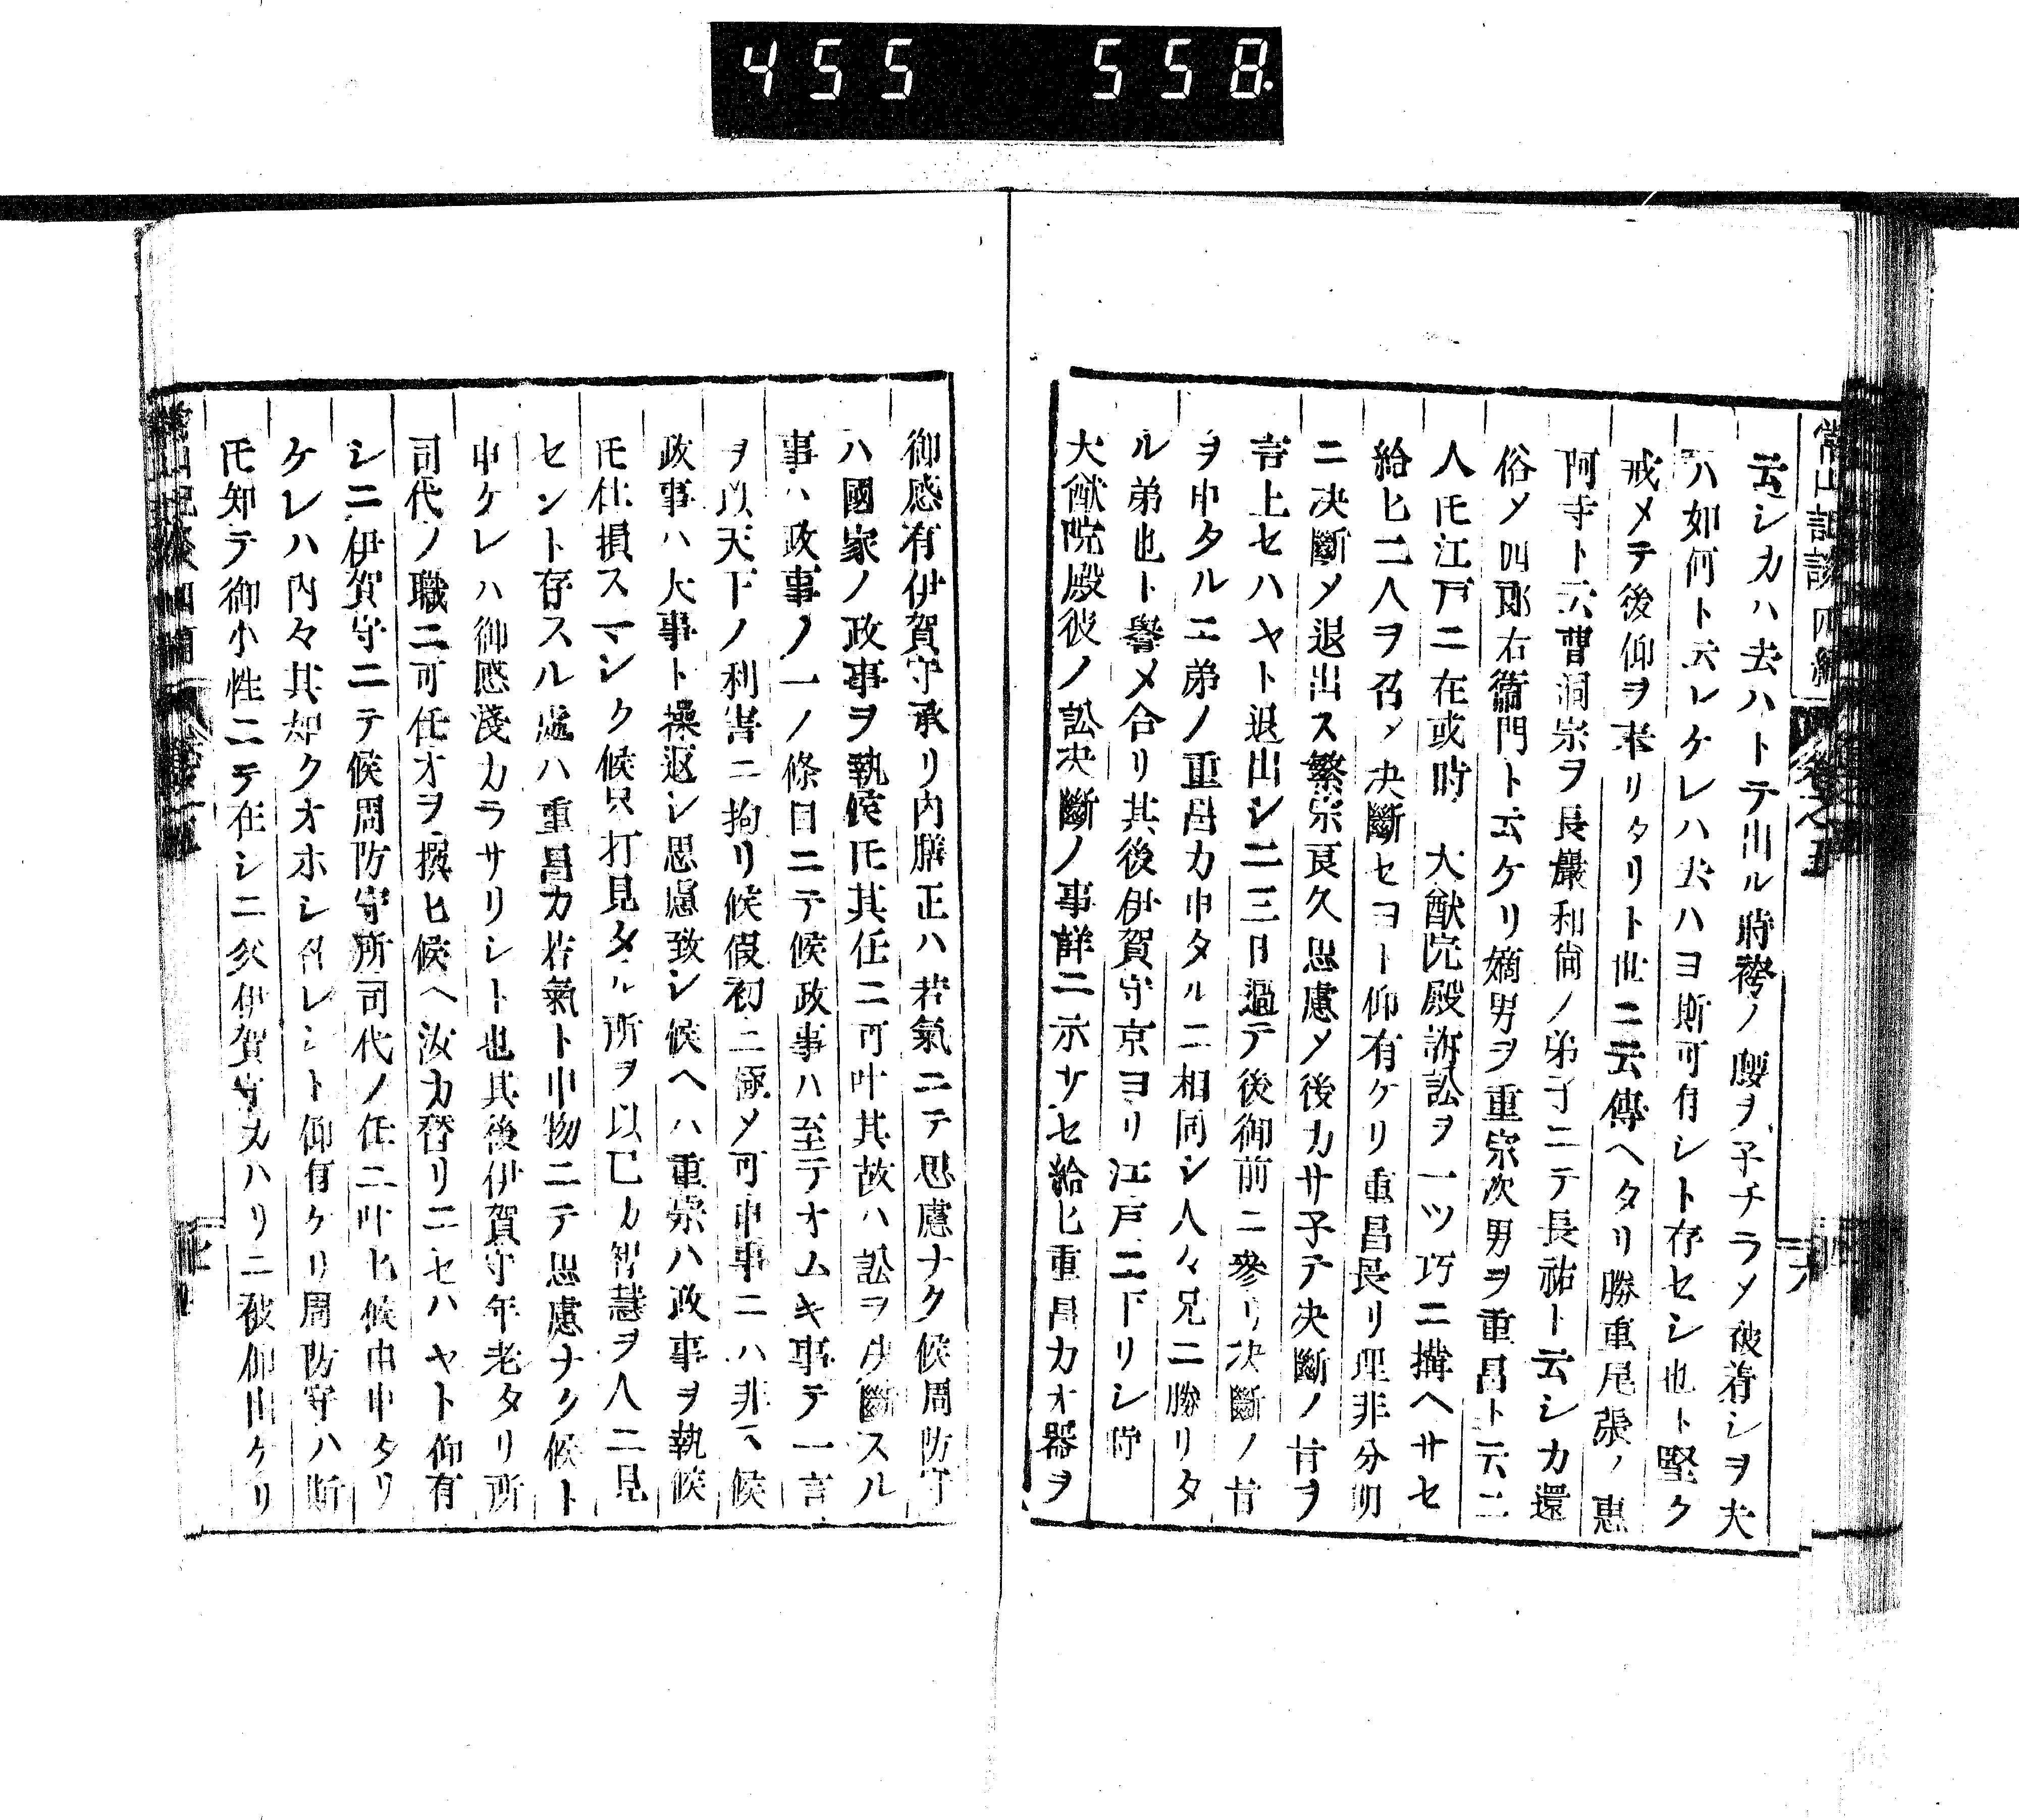 455 558
常山記談四編 卷之五 六
云シカハ去ハトテ出ル時袴ノ腰ヲ子チラメ被着シヲ夫
ハ如何ト云レケレハ去ハヨ斯可有シト存セシ也ト堅ク
戒メテ後仰ヲ承リタリト世ニ云傳ヘタリ勝重尾張ノ惠
阿寺ト云曹洞宗ヲ長巖和尚ノ弟子ニテ長祐ト云シカ還
俗メ四郎右衞門ト云ケリ嫡男ヲ重宗次男ヲ重昌ト云二
人𪜈江戸ニ在或時 大猷院殿訴訟ヲ一ツ巧ニ搆ヘサセ
給ヒ二人ヲ召メ决斷セヨト仰有ケリ重昌畏リ理非分明
ニ决斷メ退出ス繁宗良久思慮メ後カサ子テ决斷ノ旨ヲ
言上セハヤト退出シ二三日過テ後御前ニ參リ决斷ノ旨
ヲ申タルニ弟ノ重昌カ申タルニ相同シ人々兄ニ勝リタ
ル弟也ト譽メ合リ其後伊賀守京ヨリ江戸ニ下リシ時
大猷院殿彼ノ訟决斷ノ事詳ニ示サセ給ヒ重昌カオ器ヲ
御感有伊賀守承リ内膳正ハ若氣ニテ思慮ナク候周防守
ハ國家ノ政事ヲ執候𪜈其任ニ可叶其故ハ訟ヲ决斷スル
事ハ政事ノ一ノ條目ニテ候政事ハ至テオムキ事テ一言
ヲ以天下ノ利害ニ拘リ候假初ニ極メ可申事ニハ非ス候
政事ハ大事ト操返シ思慮致シ候ヘハ重宗ハ政事ヲ執候
𪜈仕損スマシク候只打見タル所ヲ以己カ智慧ヲ人ニ見
セント存スル處ハ重昌カ若氣ト申物ニテ思慮ナク候ト
申ケレハ御感淺カラサリシト也其後伊賀守年老タリ所
司代ノ職ニ可任オヲ撰ヒ候ヘ汝カ替リニセハヤト仰有
シニ伊賀守ニテ候周防守所司代ノ任ニ叶ヒ候由申タリ
ケレハ内々其如クオホシ召レシト仰有ケリ周防守ハ斯
𪜈知テ御小性ニテ在シニ父伊賀守カハリニ被仰出ケリ
常山記談四編 卷之五 七